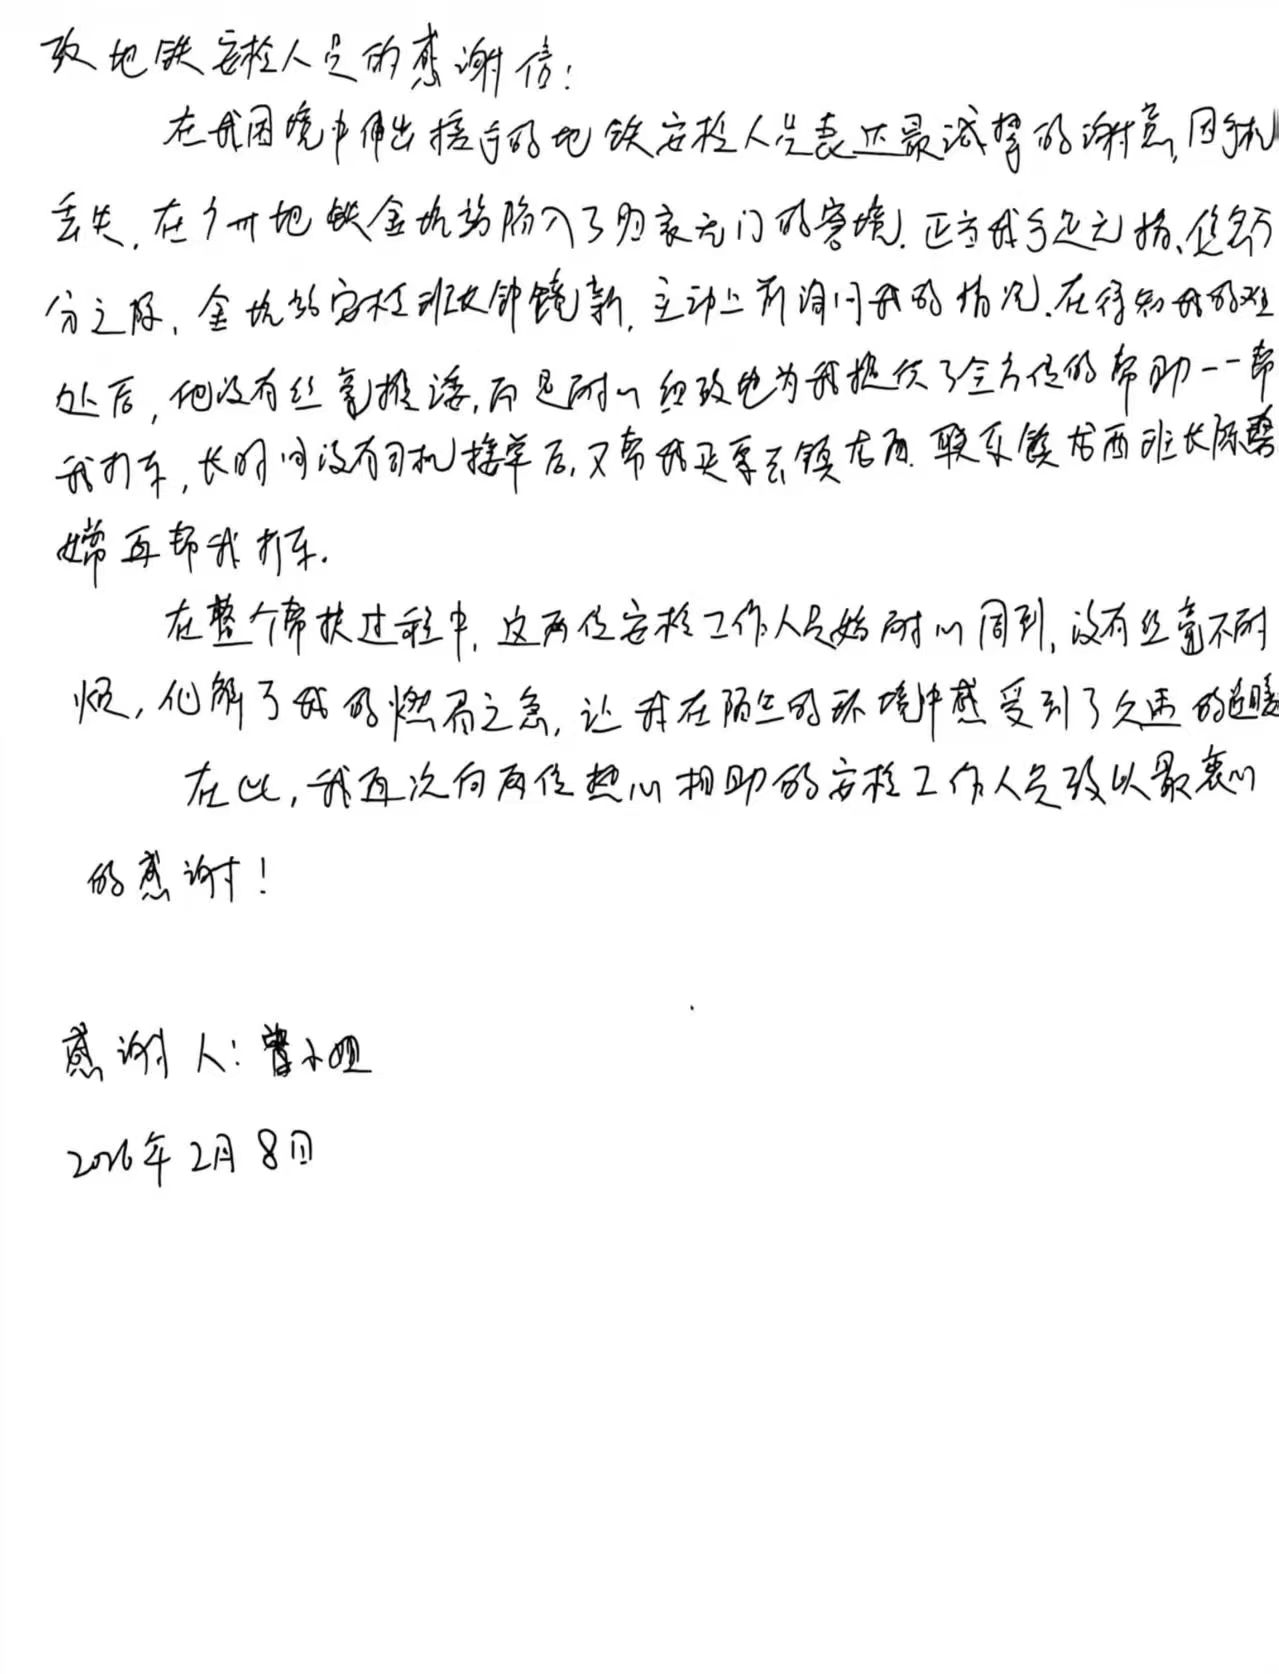 致地铁安检人员的感谢信：
在我困境中伸出援手的地铁安检人员表达最诚挚的谢意，因手机
丢失，在广州地铁金坑站陷入了归家无门的窘境．正当我手足无措、
分之际，金坑站安检班长钟镜新，主动上前询问我的情况．在得知我的难
处后，他没有丝毫推诿，而是耐心细致地为我提供了全方位的帮助——帮
我打车，长时间没有司机接单后，又帮我买票去镇龙西．联系镇龙西班长陈
嫦再帮我打车．
在整个帮扶过程中，这两位安检工作人员始耐心周到，没有丝毫不耐
烦，他解了我的燃眉之急，让我在陌生的环境中感受到了久违的温暖
在此，我再次向两位热心相助的安检工作人员致以最衷心
的感谢！
感谢人：曾小姐
2026年2月8日